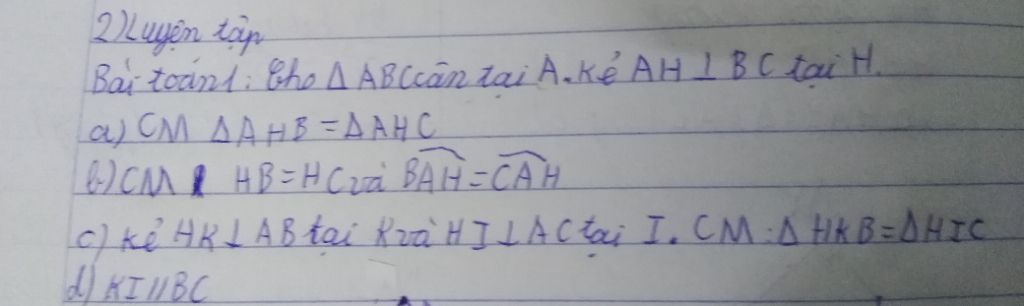 2) Luyện tập
Bài toán 1: Cho Δ ABC cân tại A. Kẻ AH ⊥ BC tại H.
a) CM ΔAHB = ΔAHC
b) CM HB = HC và BAH = CAH
c) Kẻ HK ⊥ AB tại K và HI ⊥ AC tại I. CM: Δ HKB = ΔHIC
d) KI // BC